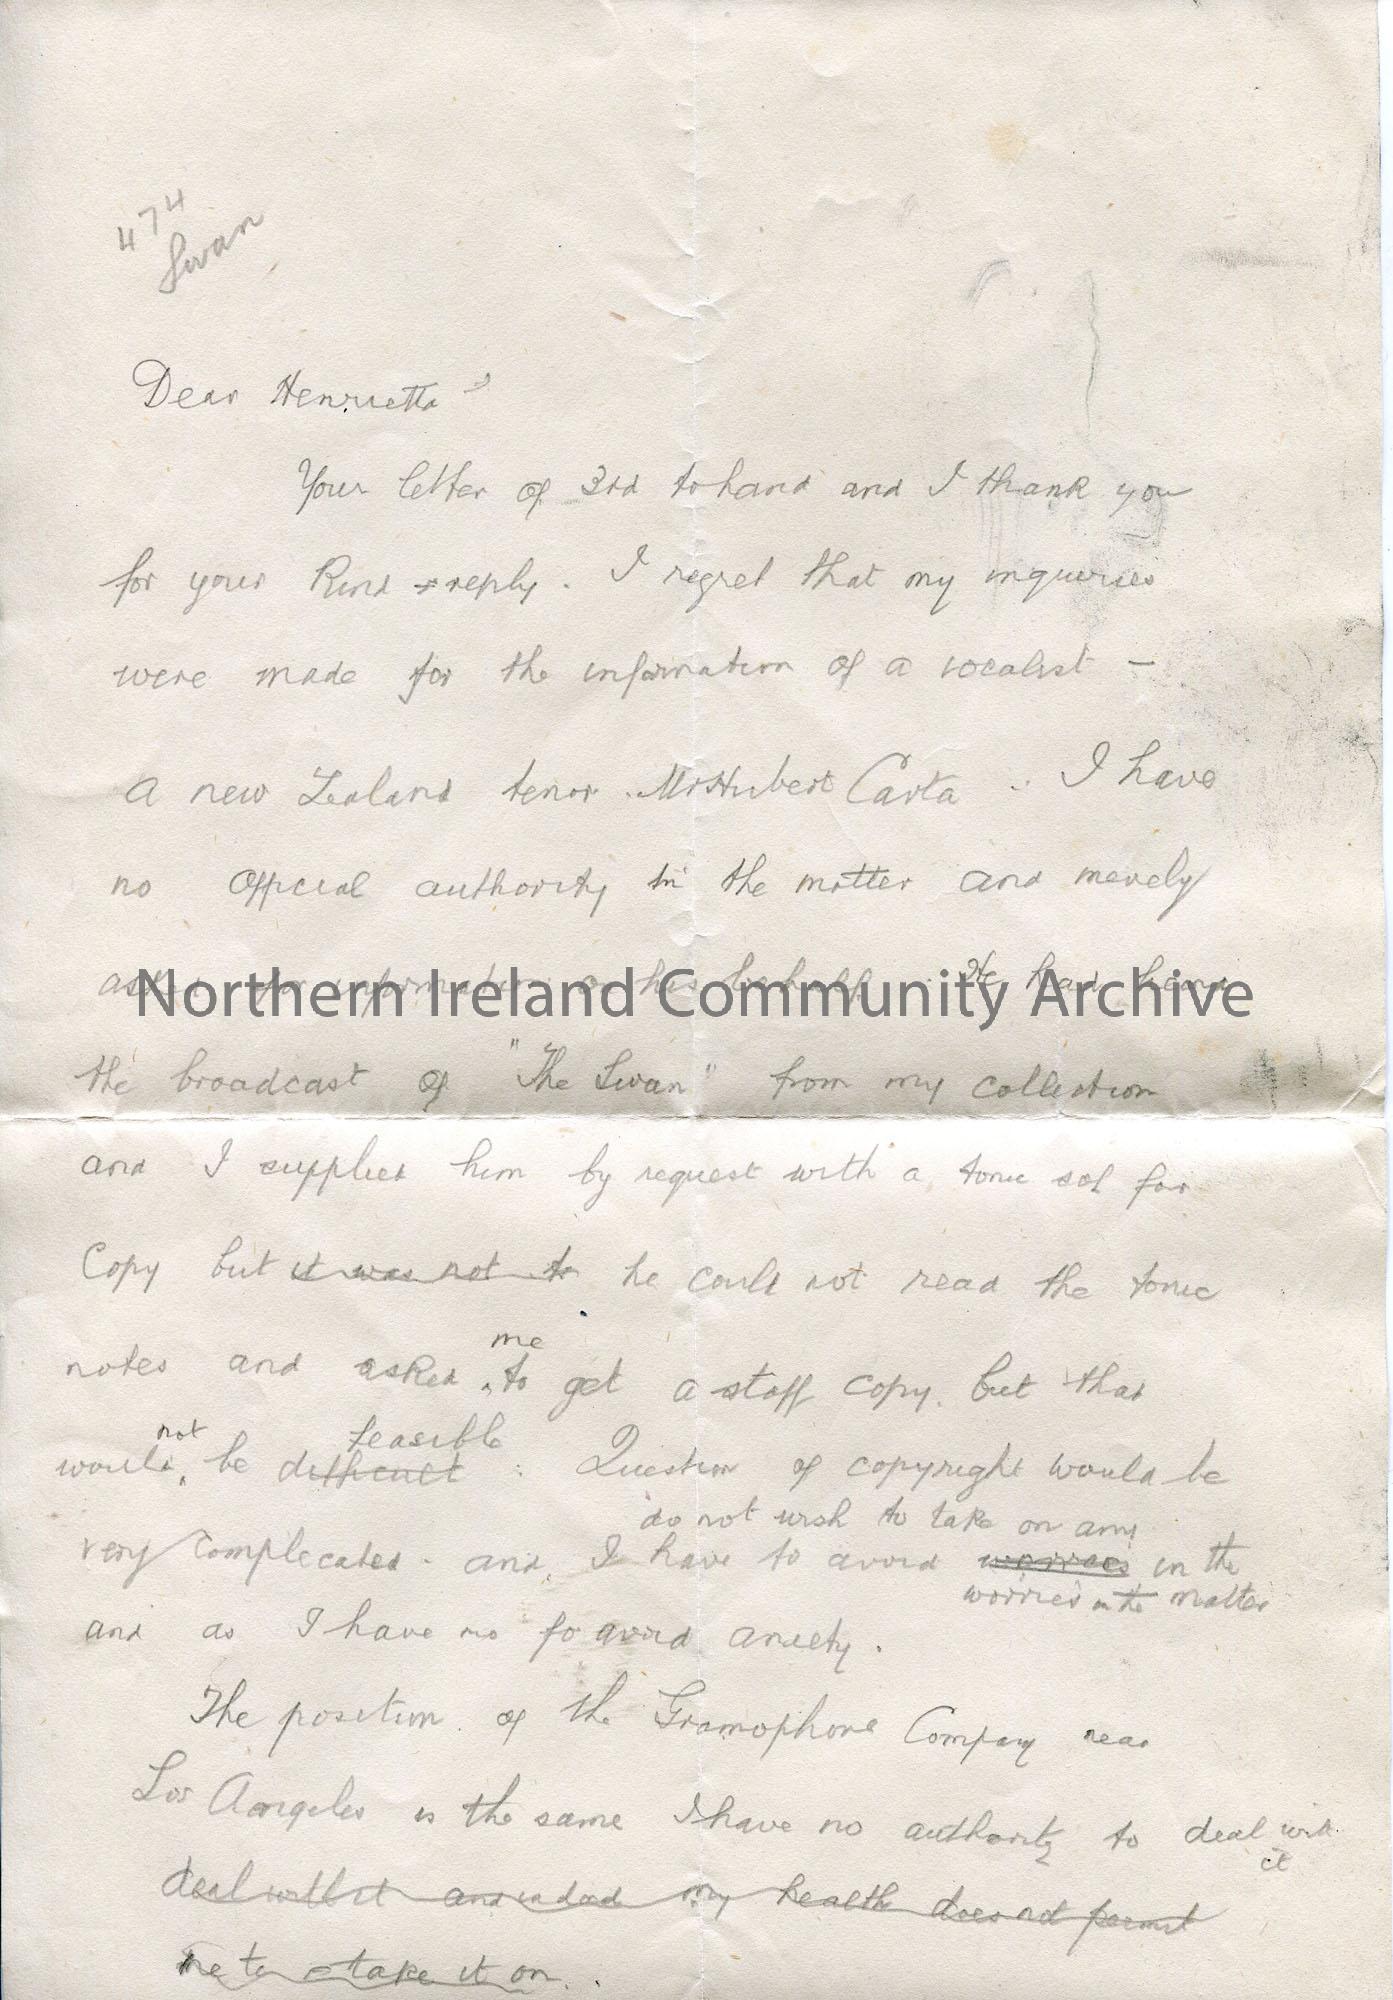 474
Swan
Dear Henrietta
Your letter of 3rd to hand and I thank you
for your kind reply. I regret that my inquiries
were made for the information of a vocalist –
a new Zealand tenor. Mr Hubert Carta. I have
no official authority in the matter and merely
asked for information on his behalf. He had heard
Northern Ireland Community Archive
the broadcast of "The Swan" from my collection
and I supplied him by request with a tonic sol far
Copy but it was not to he could not read the tonic
me
notes and asked to get a staff copy. but that
not feasible
would be difficult : Question of copyright would be
do not wish to take on any
very complicated - and I have to avoid worries in the
worries in the matter
and as I have no to avoid anxiety.
The position of the Gramophone Company near
Los Angeles is the same I have no authority to deal with
it
deal with it and indeed my health does not permit
me to take it on.